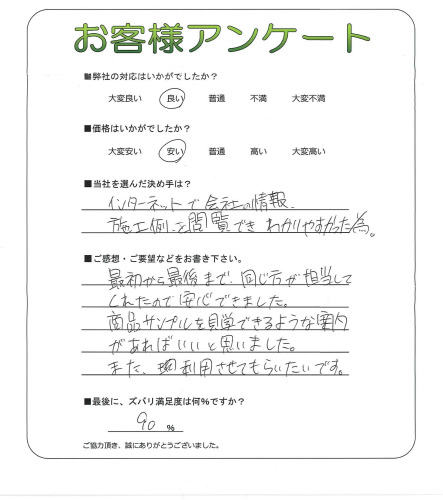 お客様アンケート
■弊社の対応はいかがでしたか？
大変良い 良い 普通 不満 大変不満
■価格はいかがでしたか？
大変安い 安い 普通 高い 大変高い
■当社を選んだ決め手は？
インターネットで会社の情報、
施工例を閲覧でき わかりやすかった為。
■ご感想・ご要望などをお書き下さい。
最初から最後まで、同じ方が担当して
くれたので安心できました。
商品サンプルを見学できるような案内
があればいいと思いました。
また、利用させてもらいたいです。
■最後に、ズバリ満足度は何％ですか？
90 ％
ご協力頂き、誠にありがとうございました。